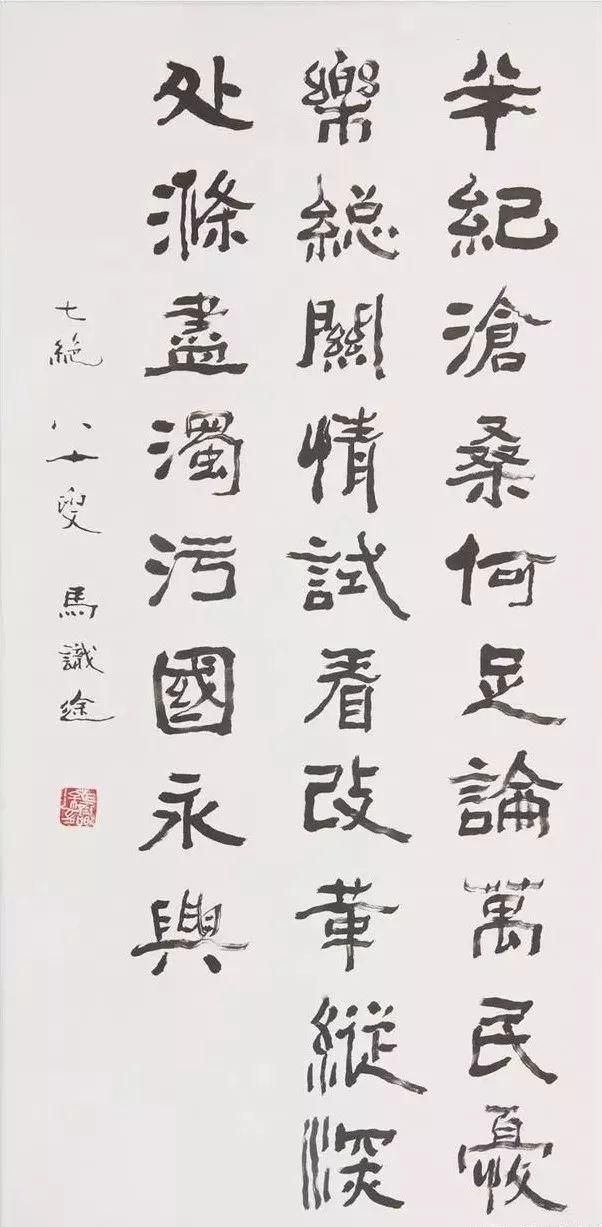 半纪滄桑何足論萬民憂
樂総關情試看改革縱深
处滌盡濁污國永興
七絕 八十叟 馬識途